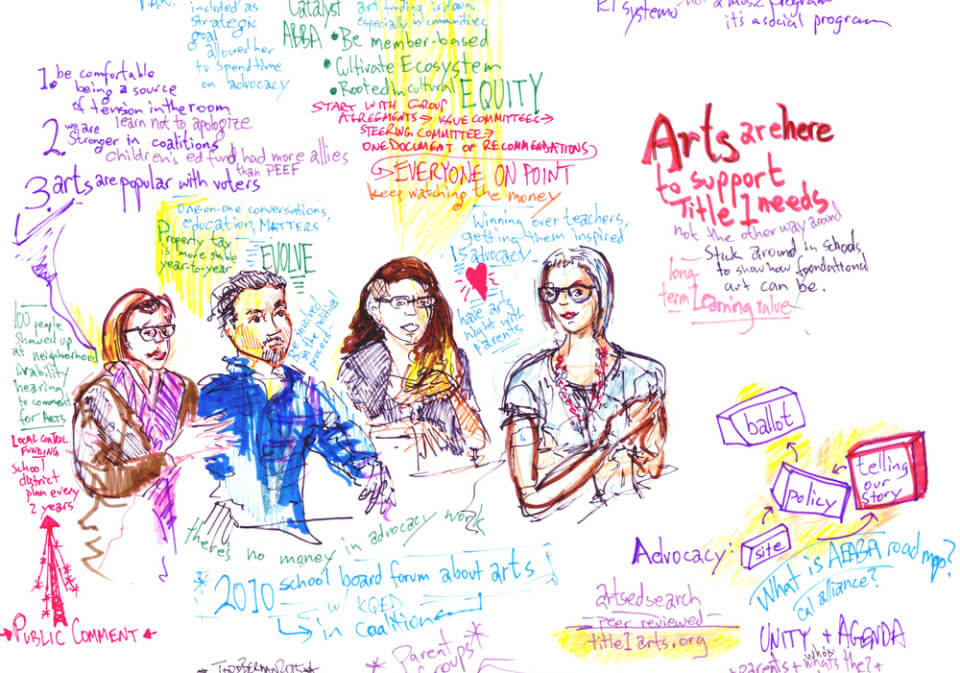 included as
strategic
goal
allowed her
to spend time
on advocacy
Catalyst
art funding is down
especially in communities
ABBA
• Be member-based
• Cultivate Ecosystem
• Rooted in cultural
EQUITY
START WITH GROUP
AGREEMENTS → ISSUE COMMITTEES →
STEERING COMMITTEE →
ONE DOCUMENT OF RECOMMENDATIONS
→ EVERYONE ON POINT
keep watching the money
systems
not a music program
it's a social program
1. be comfortable
being a source
of tension in the room
learn not to apologize
2 we are
stronger in coalitions
children's ed fund had more allies
than PEEF
3. arts are popular with voters
one-on-one conversations,
education, MATTERS
Property tax
is more stable
year-to-year
EVOLVE
be involved
in the political
process
winning over teachers,
getting them inspired
IS advocacy
have art
night with
parents
Arts are here
to support
Title I needs
not the other way around
Stick around in schools
to show how foundational
art can be.
long-
term Learning value
100 people
showed up
at neighborhood
livability
hearing
to comment
for Arts
LOCAL CONTROL
FUNDING
school
district
plan every
2 years
→ PUBLIC COMMENT ←
there's no money in advocacy work
2010 school board forum about arts
w/ KQED
in coalition
ballot
policy
telling
our
story
Advocacy: site
What is AEABA road map?
cal alliance?
artsedsearch
peer reviewed
title1arts.org
UNITY + AGENDA
parents + who's
what's the? +
* Parent *
Groups